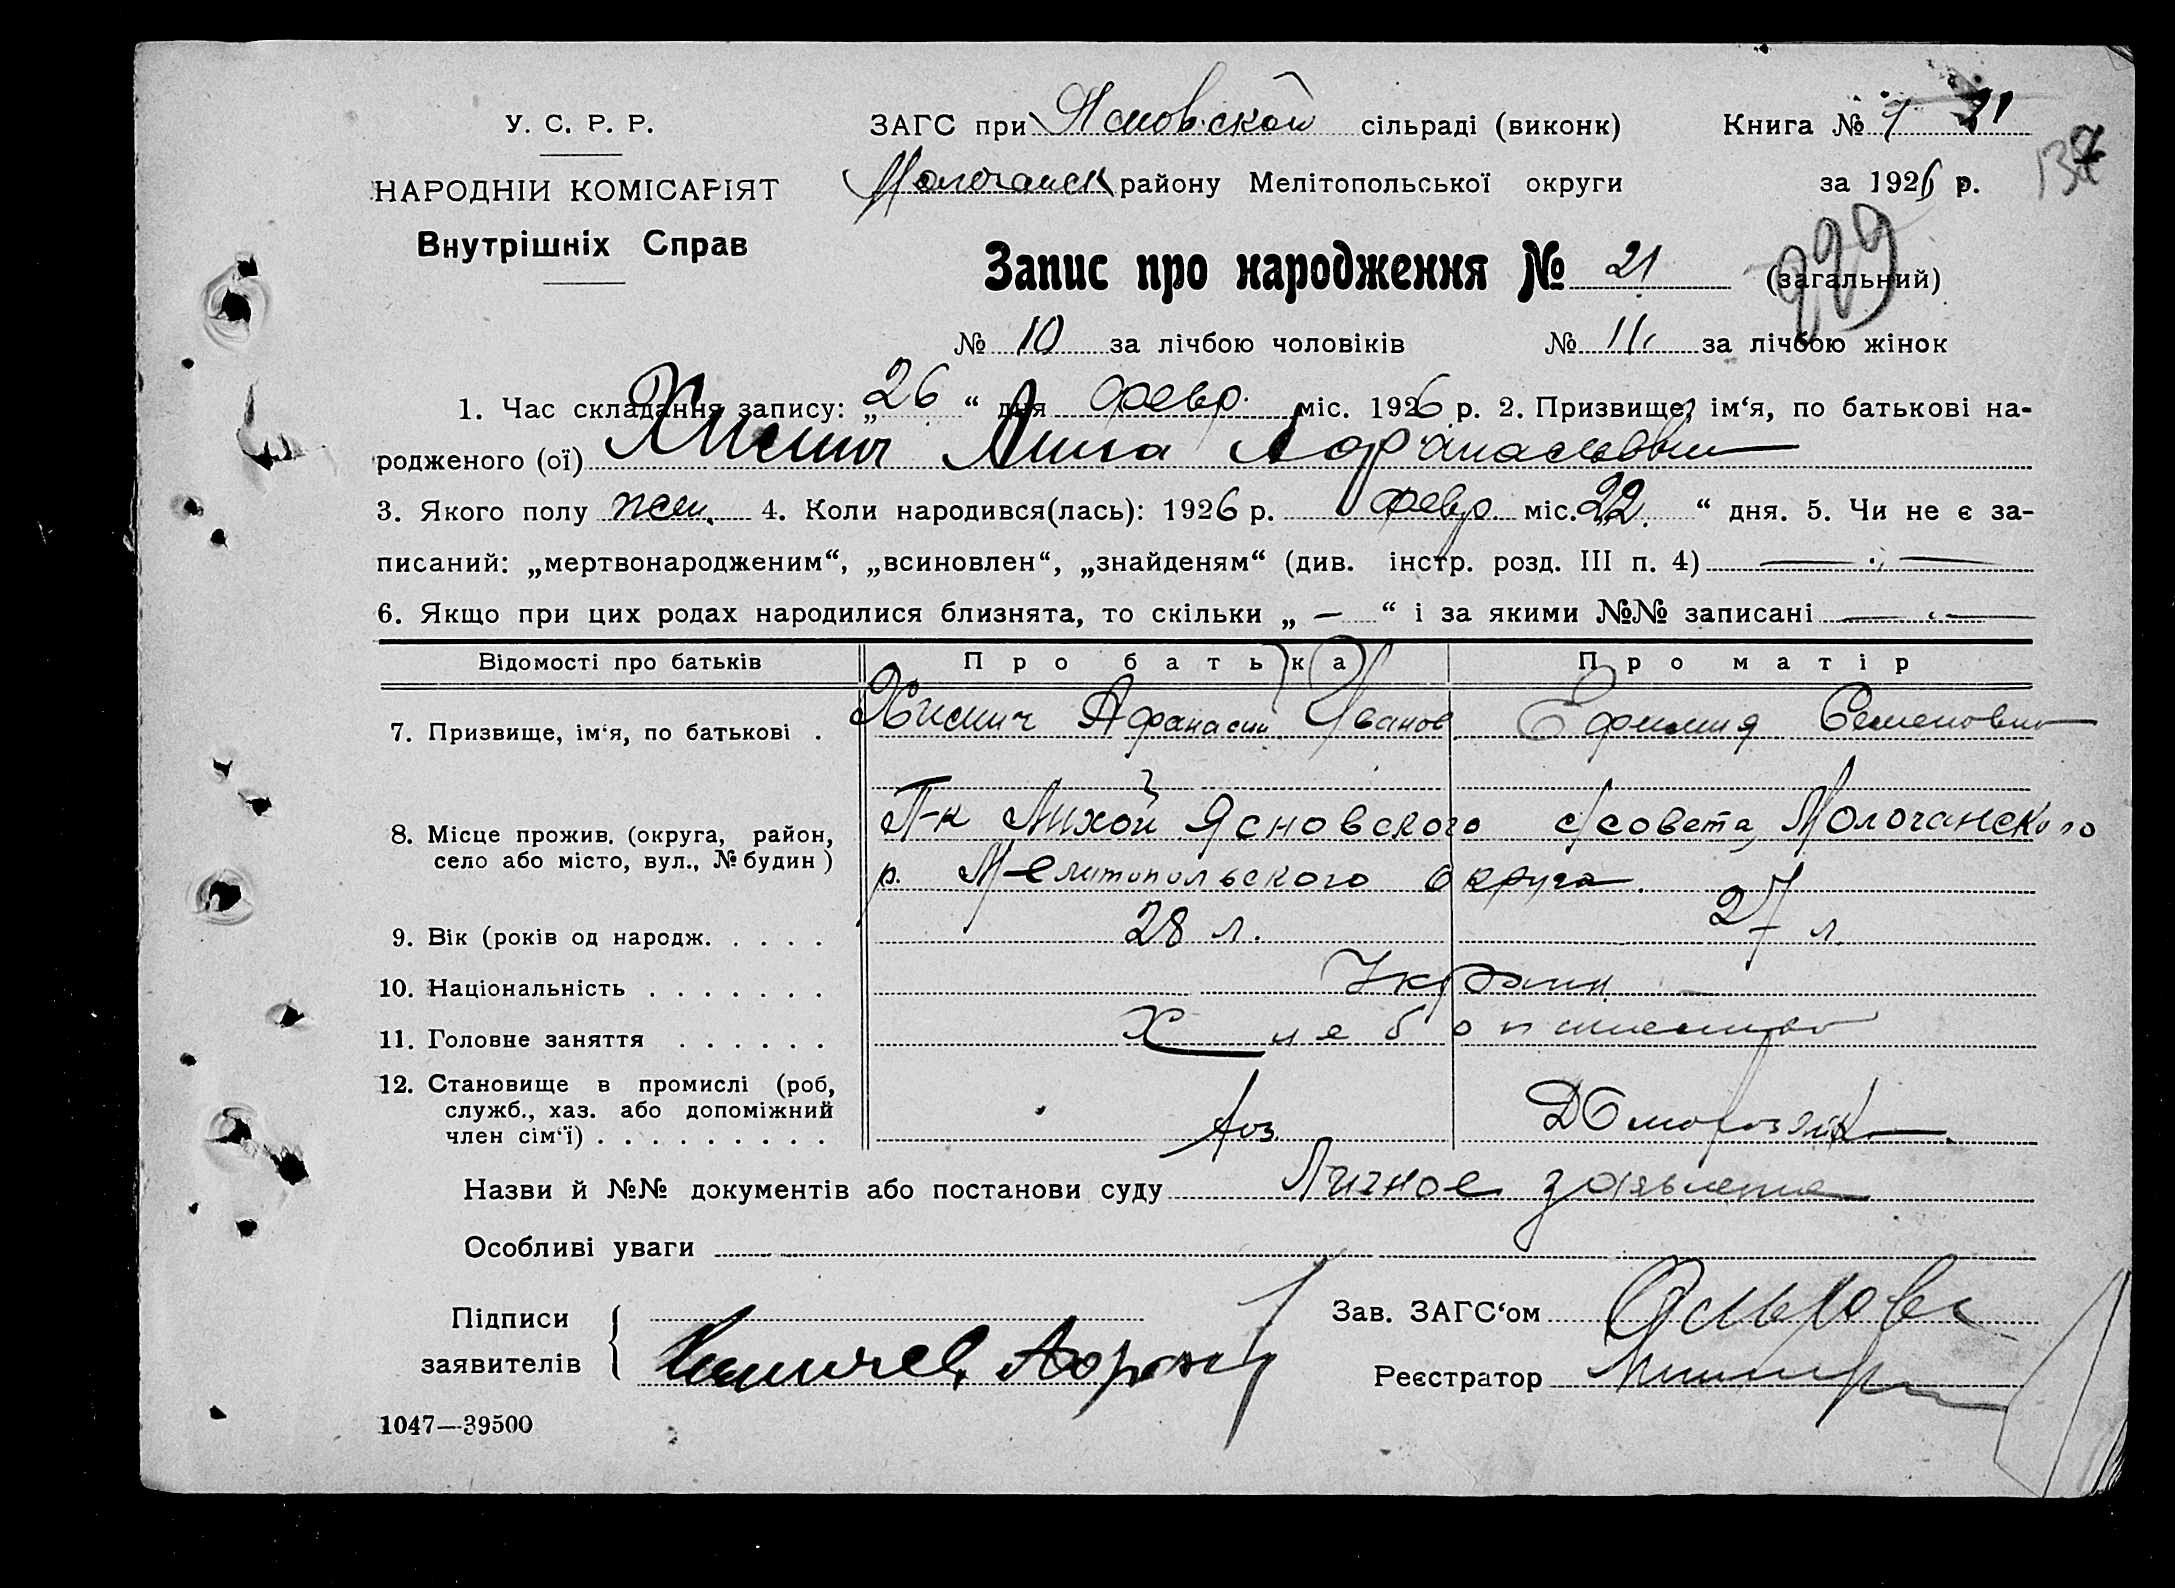 У. С. Р. Р.
НАРОДНІЙ КОМІСАРІЯТ
Внутрішніх Справ
ЗАГС при Ясновской сільраді (виконк) Книга № 1 21
137
Молочанск району Мелітопольської округи за 1926 р.
229
Запис про народження № 21 (загальний)
№ 10 за лічбою чоловіків № 11 за лічбою жінок
1. Час складання запису: „26“ дня февр. міс. 1926 р. 2. Призвище, ім‘я, по батькові на-
родженого (ої) Анна Афанасьевна
3. Якого полу жен. 4. Коли народився(лась): 1926 р. февр. міс. „22.“ дня. 5. Чи не є за-
писаний: „мертвонародженим“, „всиновлен“, „знайденям“ (див. інстр. розд. III п. 4) —
6. Якщо при цих родах народилися близнята, то скільки „ — “ і за якими №№ записані —
Відомості про батьків Про батька Про матір
7. Призвище, ім‘я, по батькові . Афанасий Иванов Ефимия Семеновна
8. Місце прожив. (округа, район,
село або місто, вул., № будин )
П-к Лихой Ясновского с/совета, Молочанского
р. Мелитопольского округа.
9. Вік (років од народж. . . . . 28 л. 27 л.
10. Національність . . . . . . . Украин
11. Головне заняття . . . . . . Хлебопашество
12. Становище в промислі (роб,
служб., хаз. або допоміжний
член сім‘ї) . . . . . . . . . хоз. Домохозяйка
Назви й №№ документів або постанови суду Личное заявление
Особливі уваги
Підписи
заявителів
Зав. ЗАГС‘ом
Реєстратор
1047—39500